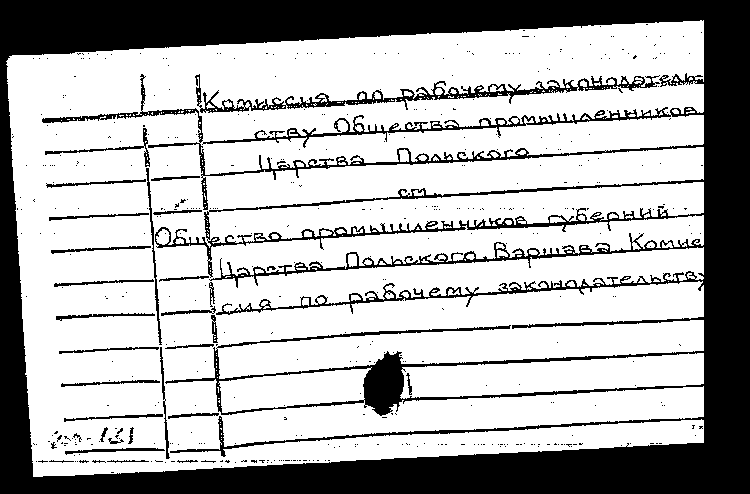 Комиссия по рабочему законодатель-
ству Общества промышленников
Царства Польского
см.
Общество промышленников губерний
Царства Польского. Варшава. Комис
сия по рабочему законодательству